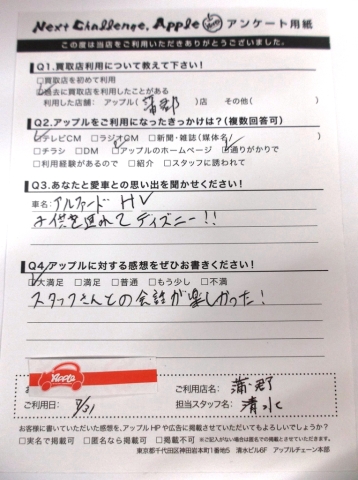 Next Challenge, Apple アンケート用紙
この度は当店をご利用いただきありがとうございました。
Q1.買取店利用について教えて下さい!
□買取店を初めて利用
□過去に買取店を利用したことがある
利用した店舗: アップル( 蒲郡 )店 その他( )
Q2.アップルをご利用になったきっかけは?(複数回答可)
□テレビCM □ラジオCM □新聞・雑誌(媒体名 )
□チラシ □DM □アップルのホームページ □通りがかりで
□利用経験があるので □紹介 □スタッフに誘われて
Q3.あなたと愛車との思い出を聞かせください!
車名: アルファード HV
子供を連れてディズニー!!
Q4.アップルに対する感想をぜひお書きください!
□大満足 □満足 □普通 □もう少し □不満
スタッフさんとの会話が楽しかった!
Apple
ご利用店名: 蒲郡
ご利用日: 7/31
担当スタッフ名: 清水
お客様に書いていただいた感想を、アップルHPや広告に掲載させていただいてもよろしいでしょうか?
□実名で掲載可 □匿名なら掲載可 □掲載不可 ※ご記入がない場合は匿名での掲載とさせていただきます。
東京都千代田区神田岩本町1番地5 清水ビル6F アップルチェーン本部